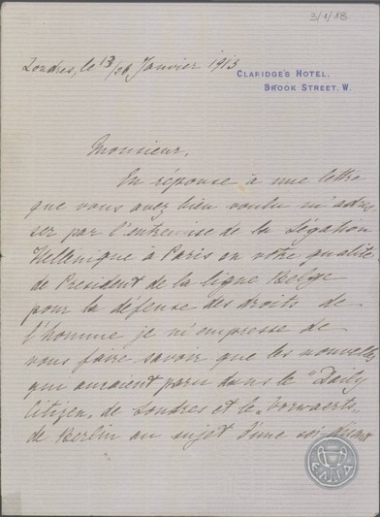 3/1/18
Londres, le 13/26 Janvier 1913
CLARIDGE'S HOTEL,
BROOK STREET, W.
Monsieur,
En réponse à une lettre
que vous avez bien voulu m'adres
ser par l'entremise de la Légation
Hellénique à Paris en votre qualité
de Président de la ligue Belge
pour la défense des droits de
l'homme je m'empresse de
vous faire savoir que les nouvelles
qui auraient paru dans le "Daily
Citizen" de Londres et le "Vorwaerts"
de Berlin au sujet d'une soi-disant